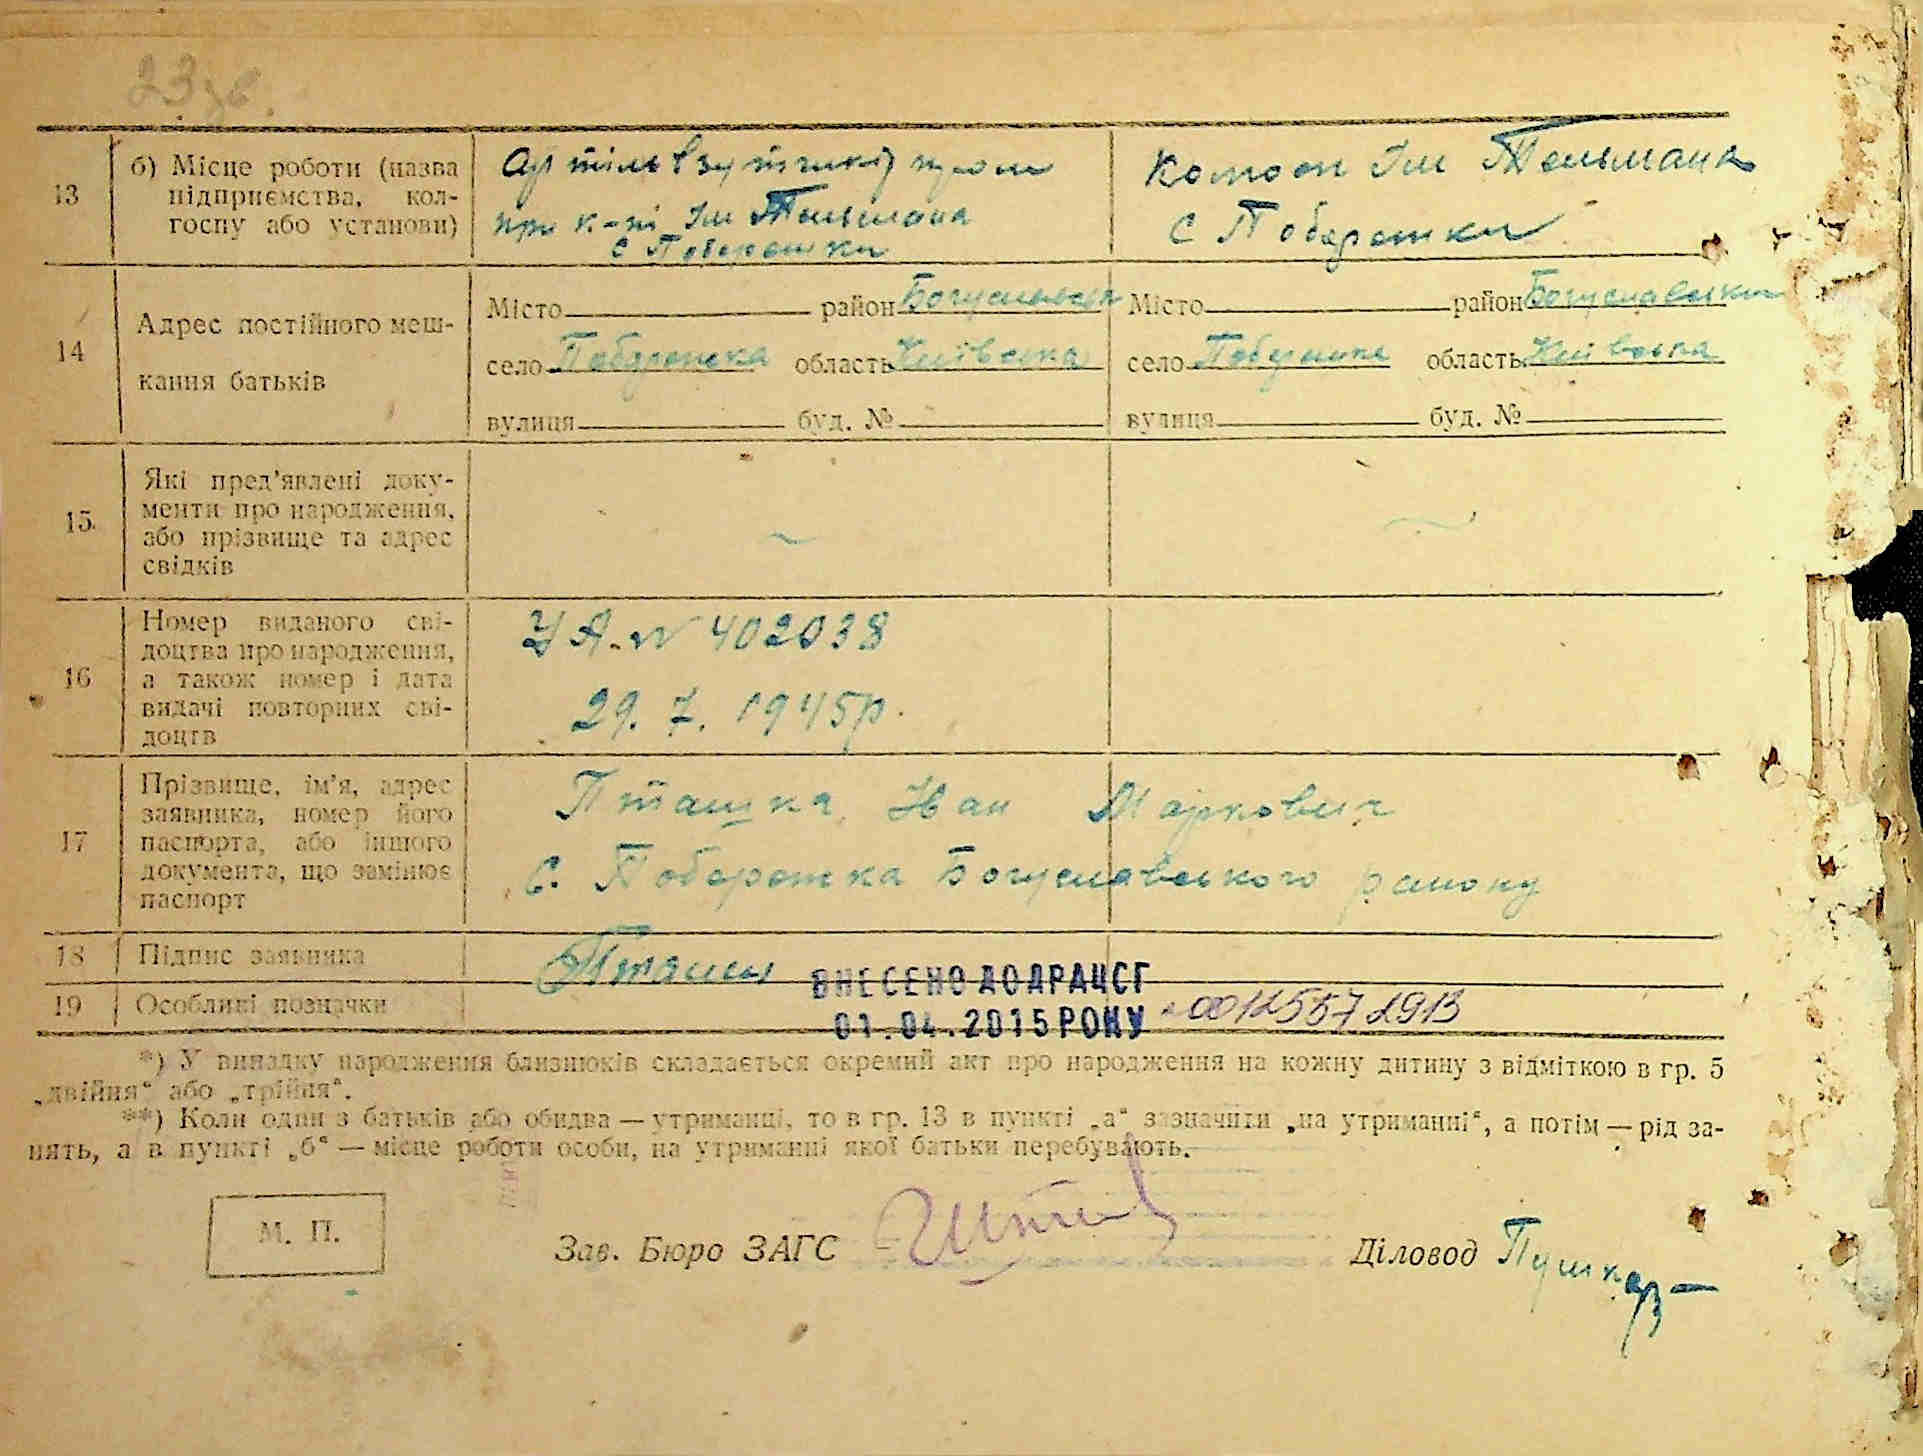 23 зв.
13 б) Місце роботи (назва підприємства, колгоспу або установи)
Артіль взуттєвиків пром
при к-пі Ім Тельмана
с Побережки
Колгосп Ім Тельмана
с Побережки
14 Адрес постійного мешкання батьків
Місто район Богуславськ Місто район Богуславськи
село Побережка область Київська село Побережка область Київська
вулиця буд. № вулиця буд. №
15 Які пред'явлені документи про народження, або прізвище та адрес свідків
16 Номер виданого свідоцтва про народження, а також номер і дата видачі повторних свідоцтв
УА. № 402038
29. 7. 1945р.
17 Прізвище, ім'я, адрес заявника, номер його паспорта, або іншого документа, що замінює паспорт
Пташка Иван Маркович
с. Побережка Богуславського району
18 Підпис заявника
Пташка
19 Особливі позначки
ВНЕСЕНО ДО ДРАЦСГ
01.04.2015 РОКУ 00125572913
*) У випадку народження близнюків складається окремий акт про народження на кожну дитину з відміткою в гр. 5
„двійня“ або „трійня“.
**) Коли один з батьків або обидва — утриманці, то в гр. 13 в пункті „а“ зазначити „на утриманні“, а потім — рід за-
нять, а в пункті „б“ — місце роботи особи, на утриманні якої батьки перебувають.
М. П.
Зав. Бюро ЗАГС Діловод Пушкар